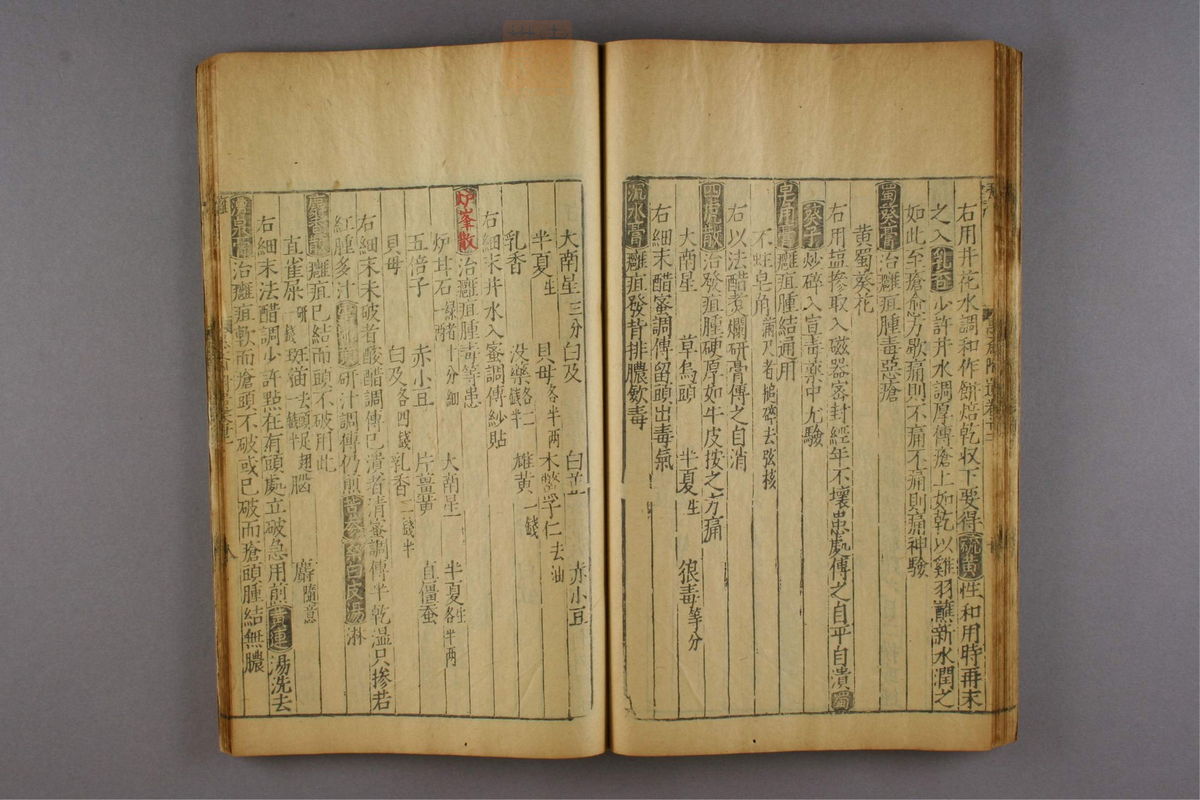 右用井花水調和作餅焙乾收下要得硫黃性和用時再末
之入乳香少許井水調厚傅瘡上如乾以雞羽蘸新水潤之
如此至瘡愈方歇痛則不痛不痛則痛神驗
蜀葵膏治癰疽腫毒惡瘡
黃蜀葵花
右用塩摻取入磁器密封經年不壞患處傅之自平自潰蜀
葵子炒碎入宣毒藥中尤驗
皂角膏癰疽腫結通用
不蛀皂角滿尺者搥碎去弦核
右以法醋煑爛研膏傅之自消
四虎散治發疽腫硬厚如牛皮按之方痛
大南星 草烏頭 半夏生 狼毒等分
右細末醋蜜調傅留頭出毒氣
沉水膏癰疽發背排膿斂毒
大南星三分 白及 白芷 赤小豆
半夏生 貝母各半兩 木鱉子仁去油
乳香 没藥各二錢半 雄黃一錢
右細末井水入蜜調傅紗貼
炉峯散治癰疽腫毒等患
炉甘石一兩 大南星 半夏生各半兩
五倍子 赤小豆 片薑黃 直僵蚕
貝母 白及各四錢 乳香二錢半
右細末未破者醶醋調傅已潰者清蜜調傅半乾温只摻若
紅腫多汁研汁調傅仍煎苦參桑白皮湯淋
麝香散癰疽已結而頭不破用此
直雀屎一錢研 斑猫去頭足翅一錢半 腦麝隨意
右細末法醋調少許點在有頭處立破急用煎黃連湯洗去
治癰疽軟而瘡頭不破或已破而瘡頭腫結無膿